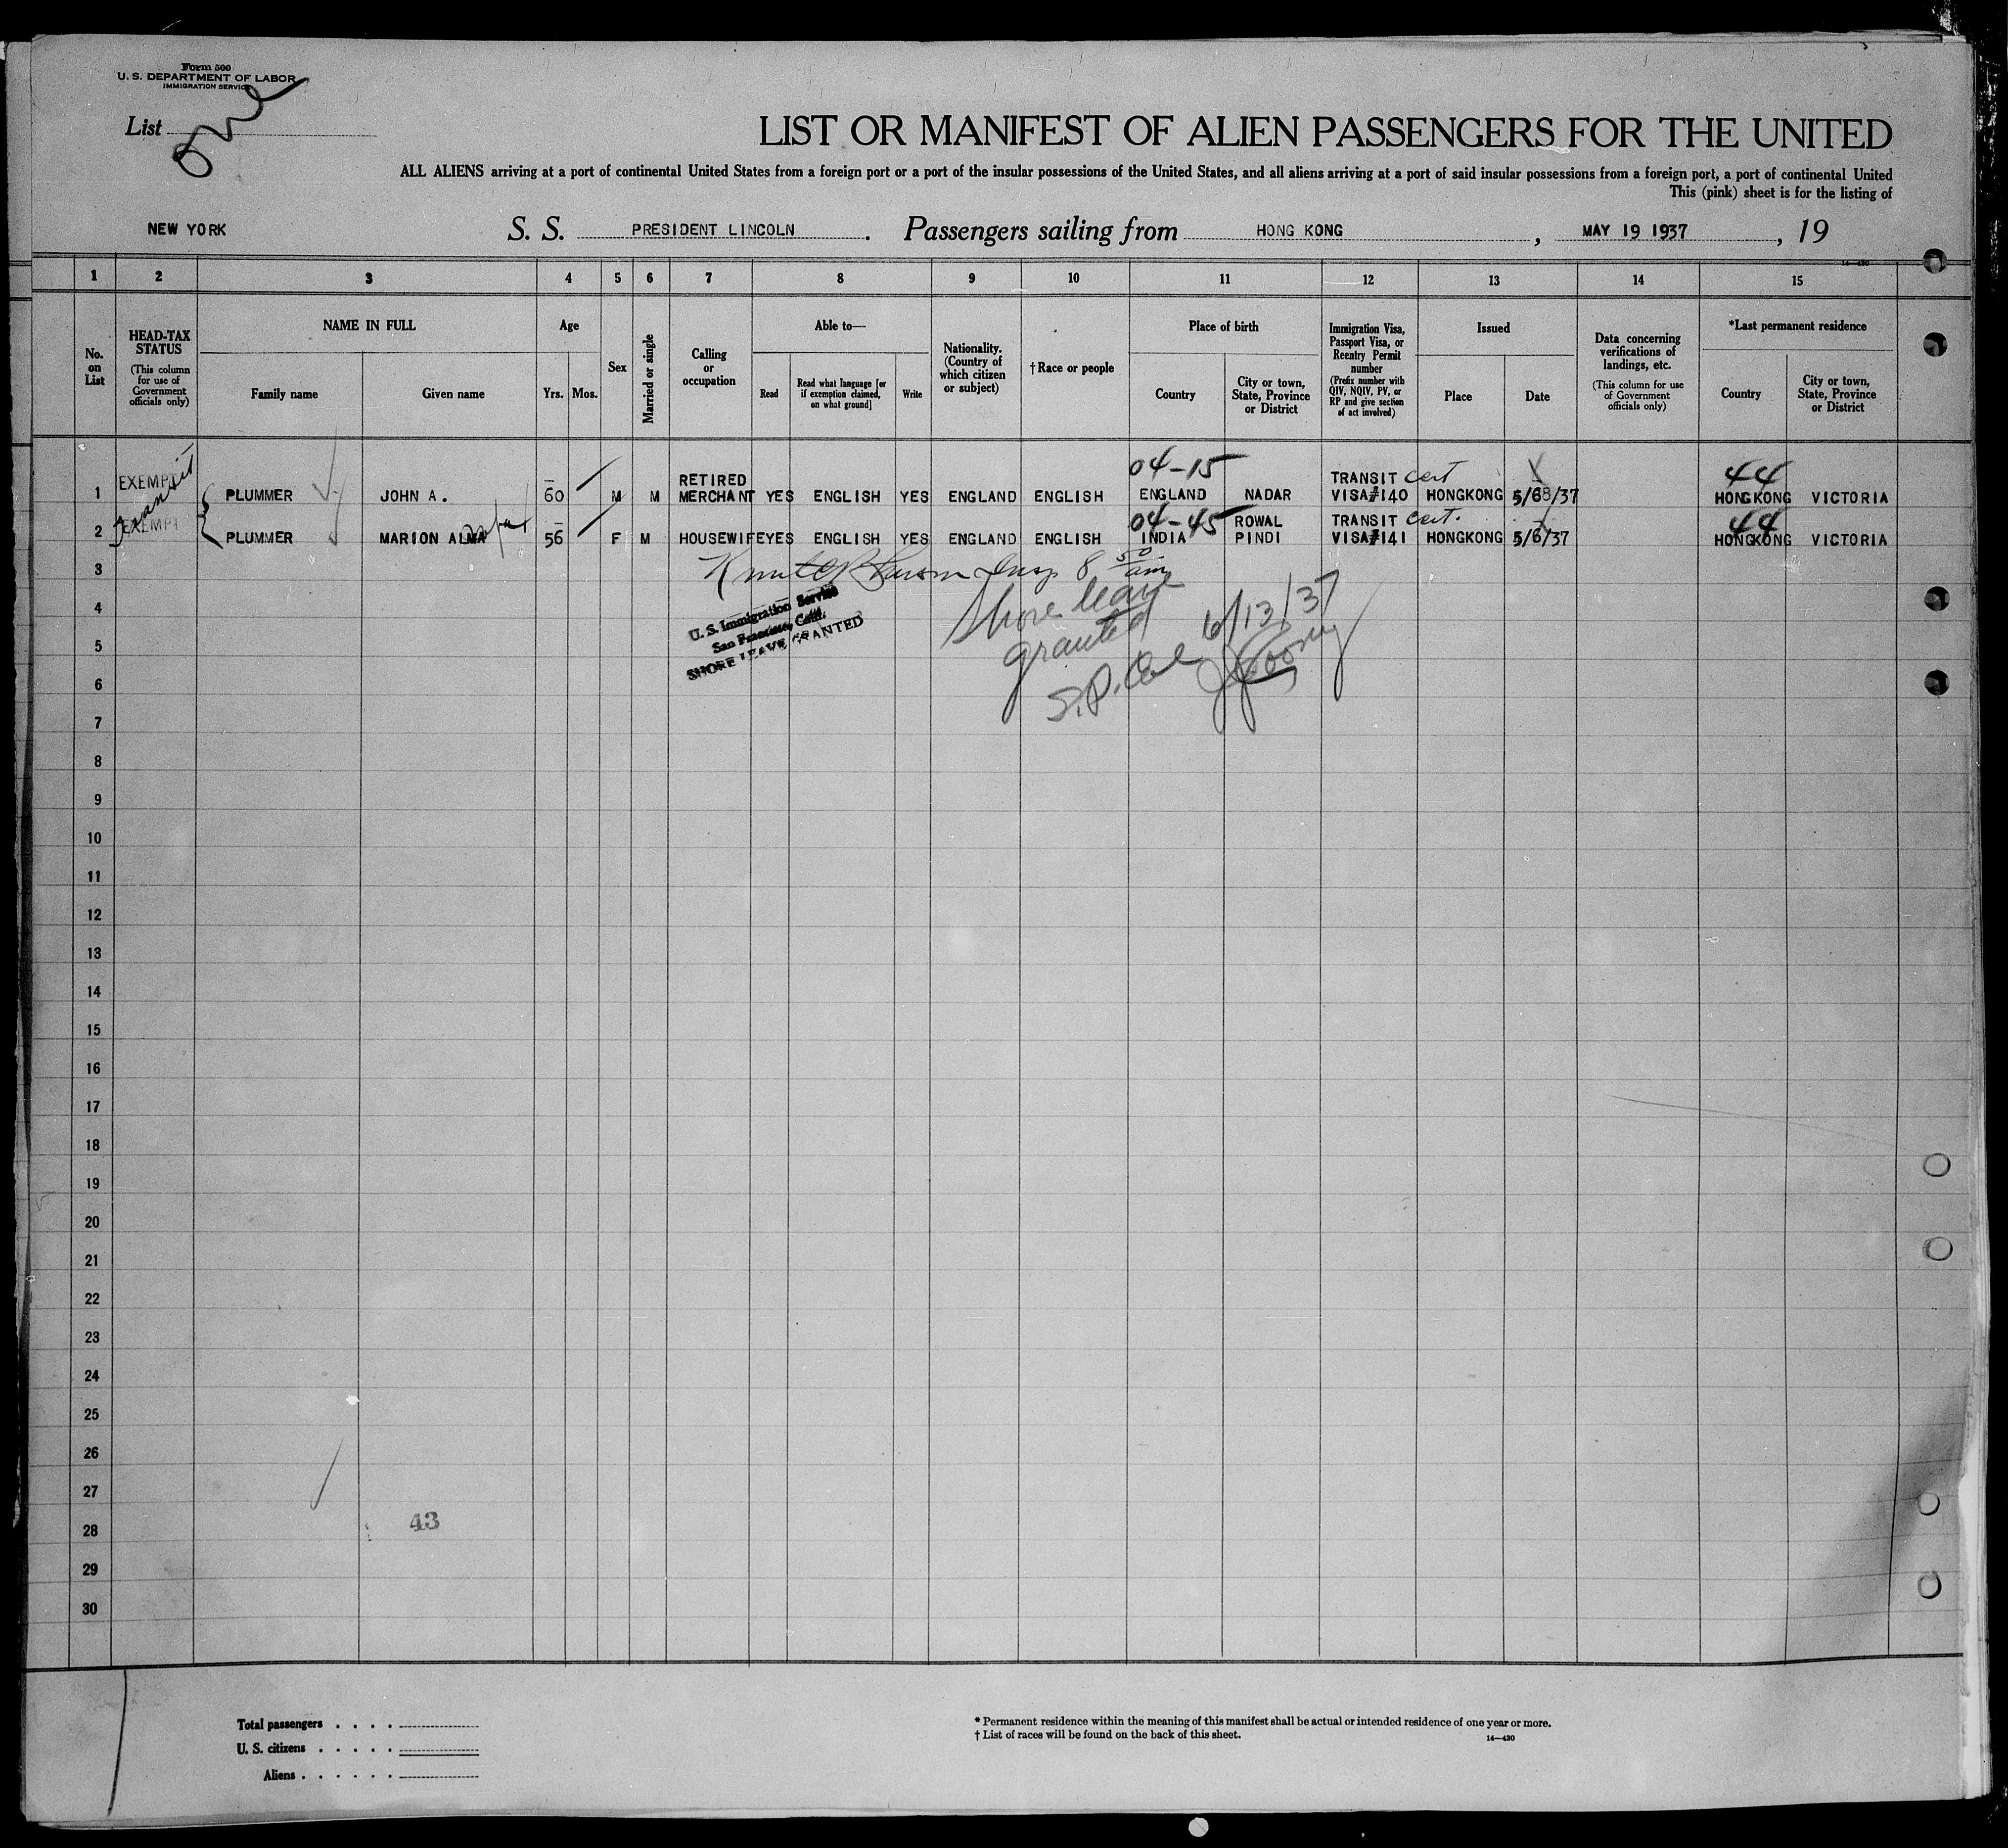 Form 500
U. S. DEPARTMENT OF LABOR
IMMIGRATION SERVICE
List one
LIST OR MANIFEST OF ALIEN PASSENGERS FOR THE UNITED
ALL ALIENS arriving at a port of continental United States from a foreign port or a port of the insular possessions of the United States, and all aliens arriving at a port of said insular possessions from a foreign port, a port of continental United
This (pink) sheet is for the listing of
NEW YORK S. S. PRESIDENT LINCOLN. Passengers sailing from HONG KONG, MAY 19 1937, 19
14-430
1 2 3 4 5 6 7 8 9 10 11 12 13 14 15
No. on List
HEAD-TAX STATUS
(This column for use of Government officials only)
NAME IN FULL
Family name Given name
Age
Yrs. Mos.
Sex
Married or single
Calling or occupation
Able to—
Read
Read what language [or if exemption claimed, on what ground]
Write
Nationality. (Country of which citizen or subject)
† Race or people
Place of birth
Country
City or town, State, Province or District
Immigration Visa, Passport Visa, or Reentry Permit number
(Prefix number with QIV, NQIV, PV, or RP and give section of act involved)
Issued
Place Date
Data concerning verifications of landings, etc.
(This column for use of Government officials only)
*Last permanent residence
Country
City or town, State, Province or District
04-15 44
EXEMPT transit RETIRED TRANSIT cert
1 PLUMMER JOHN A. 60 M M MERCHANT YES ENGLISH YES ENGLAND ENGLISH ENGLAND NADAR VISA#140 HONGKONG 5/6/37 HONGKONG VICTORIA
EXEMPT 04-45 ROWAL TRANSIT cert. 44
2 PLUMMER MARION ALMA 56 F M HOUSEWIFE YES ENGLISH YES ENGLAND ENGLISH INDIA PINDI VISA#141 HONGKONG 5/6/37 HONGKONG VICTORIA
3 Insp 8 50 am
4 U. S. Immigration Service
San Francisco, Calif.
SHORE LEAVE GRANTED
Shore leave
granted 6/13/37
5
6
7
8
9
10
11
12
13
14
15
16
17
18
19
20
21
22
23
24
25
26
27
28 43
29
30
Total passengers . . . .
U. S. citizens . . . . .
Aliens . . . . . .
* Permanent residence within the meaning of this manifest shall be actual or intended residence of one year or more.
† List of races will be found on the back of this sheet.
14-430